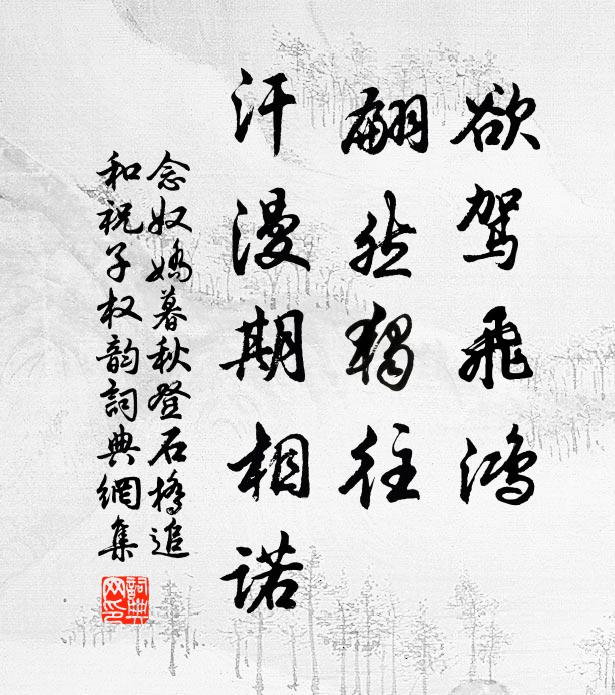 欲驾飞鸿
翩然独往
汗漫期相诺
念奴嬌暮秋登石橋追
和祝子权韵詞典網集